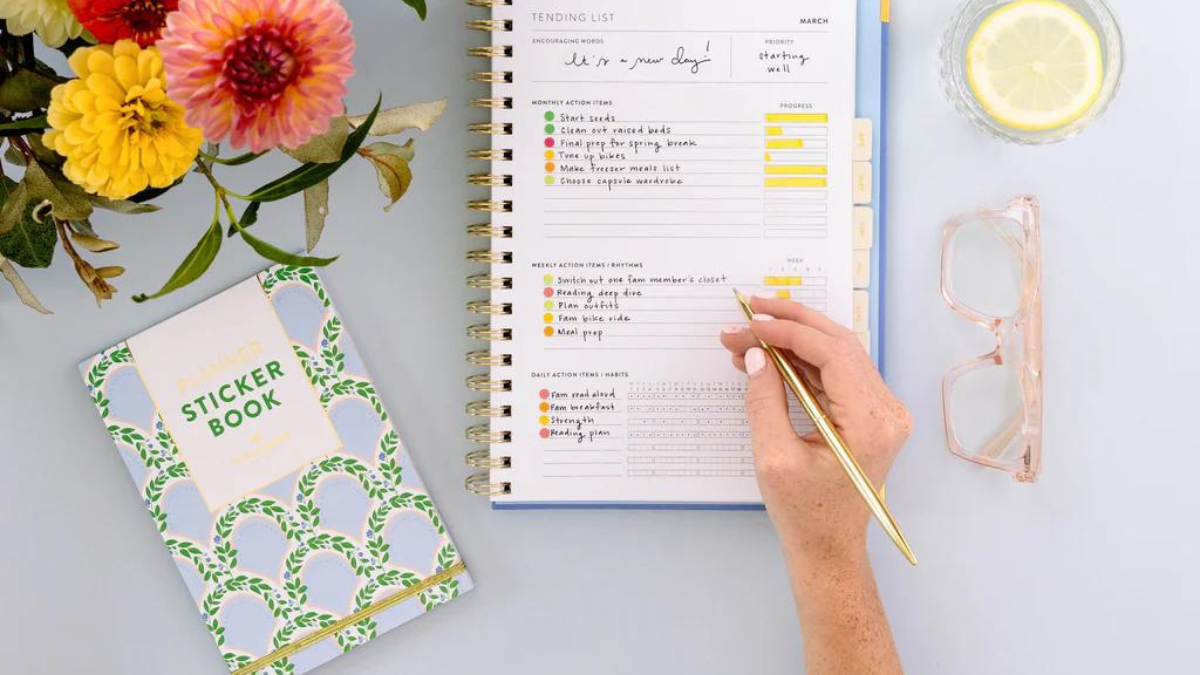 TENDING LIST
MARCH
ENCOURAGING WORDS
It's a new day!
PRIORITY
starting
well
MONTHLY ACTION ITEMS
PROGRESS
Start seeds
Clean out raised beds
Final prep for spring break
Tune up bikes
Make freezer meals list
Choose capsule wardrobe
WEEKLY ACTION ITEMS / RHYTHMS
WEEK
Switch out one fam member's closet
Reading deep dive
Plan outfits
Fam bike ride
Meal prep
DAILY ACTION ITEMS / HABITS
Fam read aloud
Fam breakfast
Strength
Reading plan
PLANNER
STICKER
BOOK